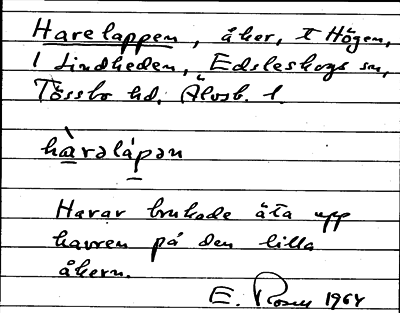 Harelappen, åker, t Högen,
1 Lindheden, Edsleskogs sn,
Tössbo hd, Älvsb. l.
hàrəlápən
Harar brukade äta upp
havren på den lilla
åkern.
E. 1964